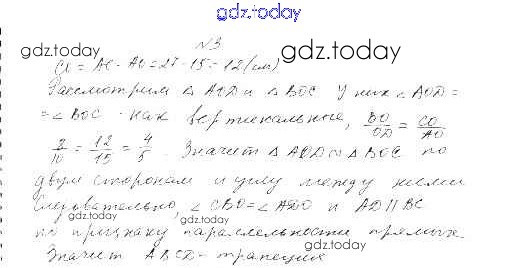 gdz.today
№3
gdz.today
gdz.today
CO = AC - AO = 27 - 15 = 12 (см)
Рассмотрим △ AOD и △ BOC У них ∠ AOD =
= ∠ BOC как вертикальные, BO/OD = CO/AO
8/10 = 12/15 = 4/5. Значит △ AOD ∾ △ BOC по
двум сторонам и углу между ними
Следовательно, ∠ CBO = ∠ ADO и AD || BC
gdz.today
gdz.today
по признаку параллельности прямых.
gdz.today
Значит ABCD - трапеция